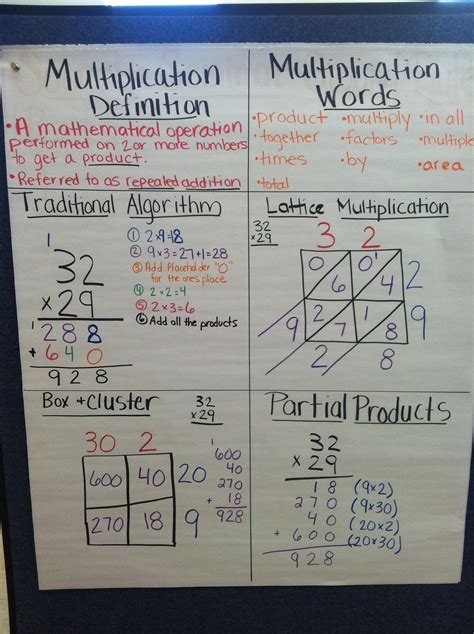 Multiplication
Definition
• A mathematical operation
performed on 2 or more numbers
to get a product.
• Referred to as repeated addition
Multiplication
Words
• product • multiply • in all
• together • factors • multiple
• times • by • area
• total
Traditional Algorithm
1
32
×29
1
288
+ 640
928
① 2×9=18
② 9×3=27+1=28
③ Add Placeholder "0"
for the ones place
④ 2×2=4
⑤ 2×3=6
⑥ Add all the products
Lattice Multiplication
32
×29
3 2
0 6 0 4 2
2 7 1 8 9
9 2 8
Box + Cluster
32
×29
30 2
600 40 20
270 18 9
1
600
40
270
+ 18
928
Partial Products
32
× 29
18 (9×2)
270 (9×30)
40 (20×2)
+ 600 (20×30)
928